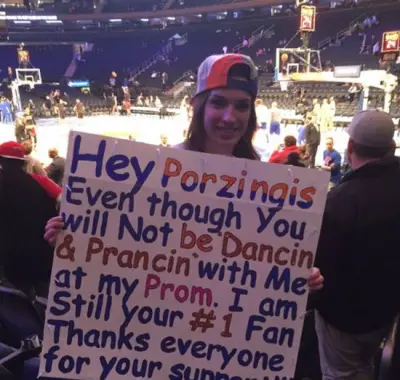 Hey Porzingis
Even though You
will Not be Dancin
& Prancin' with Me
at my Prom. I am
Still your #1 Fan
Thanks everyone
for your support